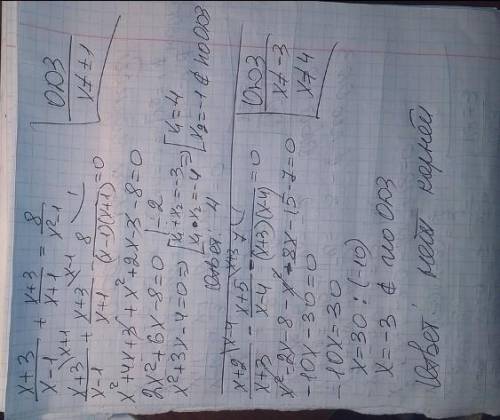 x+3/x-1 + x+3/x+1 = 8/x²-1 | ОДЗ x≠±1
x+3/x-1 \x+1 + x+3/x+1 \x-1 - 8/(x-1)(x+1) \1 = 0
x²+4x+3+x²+2x-3-8=0
2x²+6x-8=0 |:2
x²+3x-4=0 ⇒ [x₁+x₂=-3 x₁·x₂=-4 ⇒ [x₁=4 x₂=-1 ∉ по ОДЗ
Ответ: 4
x+2/x+3 \x-4 - x+5/x-4 \x+3 - 7/(x+3)(x-4) = 0 | ОДЗ x≠-3 x≠4
x²-2x-8-x²-8x-15-7=0
-10x-30=0
-10x=30
x=30:(-10)
x=-3 ∉ по ОДЗ
Ответ: нет корней